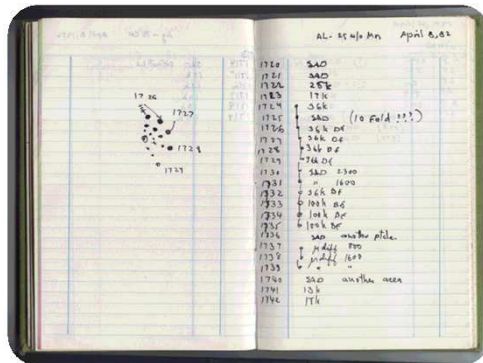 1726
1727
1728
1729
AL-25 w/o Mn April 8, 82
1720 SAD
1721 SAD
1722 25k
1723 17k
1724 36k
1725 SAD (10 Fold ???)
1726 36k DF
1727 36k DF
1728 36k DF
1729 36k DF
1730 SAD 2300
1731 " 1600
1732 36k BF
1733 100k DF
1734 100k DF
1735 100k DF
1736 SAD another
1737 μdiff 800
1738 μdiff 1600
1739 " "
1740 SAD another area
1741 13k
1742 17k